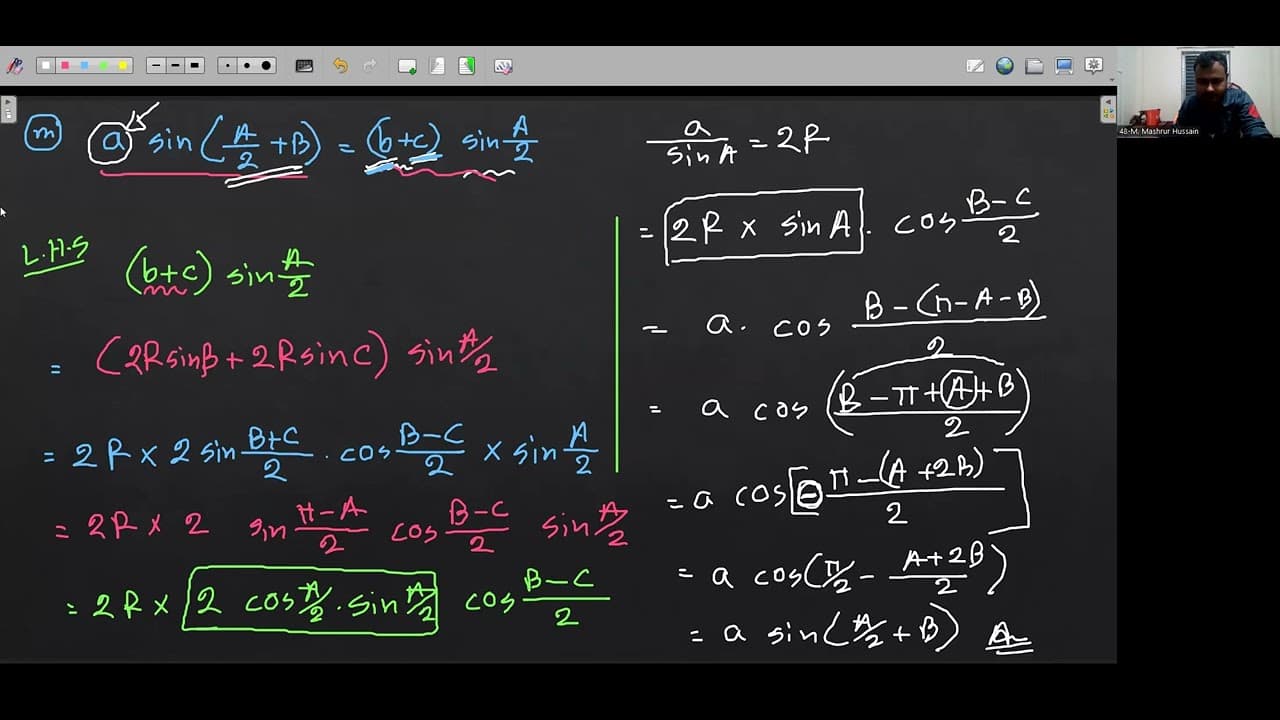 (m) a sin(A/2 + B) = (b+c) sin A/2
L.H.S
(b+c) sin A/2
= (2R sinB + 2R sinC) sin A/2
= 2R × 2 sin (B+C)/2 . cos (B-C)/2 × sin A/2
= 2R × 2 sin (π-A)/2 cos (B-C)/2 sin A/2
= 2R × 2 cos A/2 . sin A/2 cos (B-C)/2
a/sinA = 2R
= 2R × sinA . cos (B-C)/2
= a. cos (B-(π-A-B))/2
= a cos ((B-π+A+B)/2)
= a cos [- (π-(A+2B))/2]
= a cos(π/2 - (A+2B)/2)
= a sin(A/2 + B)
48-M. Mashrur Hussain